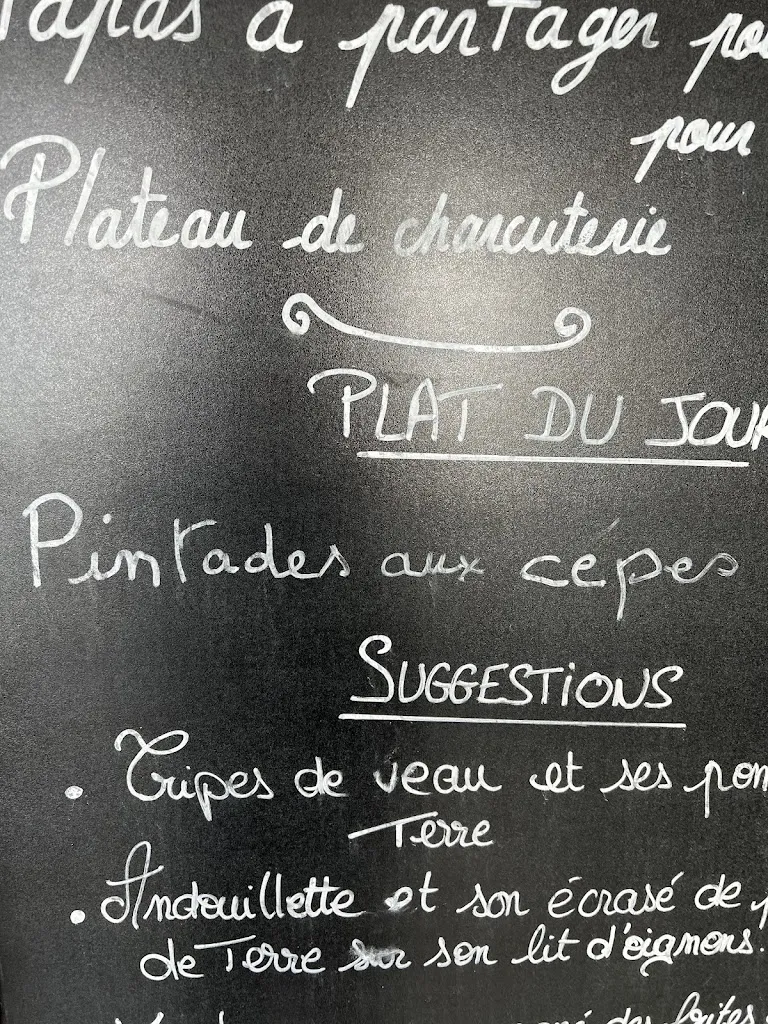 Tapas à partager
pour
Plateau de charcuterie
PLAT DU JOUR
Pintades aux cépes
SUGGESTIONS
• Tripes de veau et ses
Terre
• Andouillette et son écrasé de
de Terre sur son lit d'oignons.
des frites